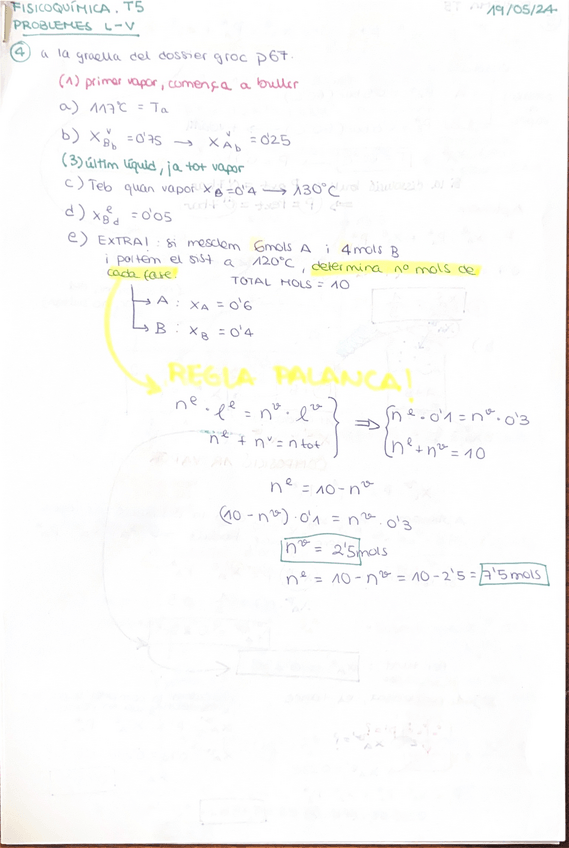 FISICOQUÍMICA. T5
19/05/24
PROBLEMES L-V
④ a la graella del dossier groc p67.
(1) primer vapor, comença a bullir
a) 117°C = Ta
b) X_B_b^v = 0'75 → X_A_b^v = 0'25
(3) últim líquid, ja tot vapor
c) Teb quan vapor X_B = 0'4 → 130°C
d) X_B_d^l = 0'05
e) EXTRA! : si mesclem 6mols A i 4 mols B
i portem el sist a 120°C, determina nº mols de
cada fase. TOTAL MOLS = 10
→ A : X_A = 0'6
→ B : X_B = 0'4
REGLA PALANCA!
n^l · l^l = n^v · l^v
n^l + n^v = ntot
⇒ { n^l · 0'1 = n^v · 0'3
n^l + n^v = 10
n^l = 10 - n^v
(10 - n^v) · 0'1 = n^v · 0'3
n^v = 2'5 mols
n^l = 10 - n^v = 10 - 2'5 = 7'5 mols